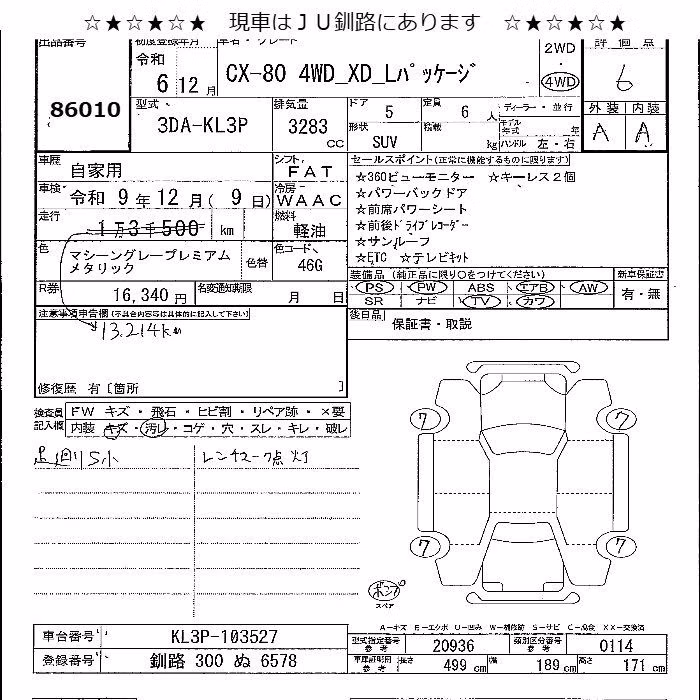 ☆★☆★☆★　現車はＪＵ釧路にあります　☆★☆★☆★
出品番号
86010
初度登録年月
令和
6 12 月
車名・グレード
CX-80 4WD_XD_Lﾊﾟｯｹｰｼﾞ
2WD
4WD
評価点
6
外装 内装
A A
型式
3DA-KL3P
排気量
3283 CC
ドア 5
定員 6 人
形状 SUV
積載 kg
ディーラー・並行
モデル年式 年
ハンドル 左・右
車歴 自家用
シフト FAT
車検 令和 9 年 12 月 ( 9 日)
冷房 WAAC
走行 1万3千500 km
燃料 軽油
色 マシーングレープレミアムメタリック
色替
色コード 46G
R券 16,340 円
名変通知期限 月 日
セールスポイント(正常に機能するものに限ります)
☆360ビューモニター ☆キーレス2個
☆パワーバックドア
☆前席パワーシート
☆前後ﾄﾞﾗｲﾌﾞﾚｺｰﾀﾞｰ
☆サンルーフ
☆ETC ☆テレビキット
装備品 (純正品に限り○をつけてください)
PS PW ABS エアB AW
SR ナビ TV カワ
新車保証書
有・無
後日品 保証書・取説
注意事項申告欄(不具合内容等は具体的に記入して下さい)
13,214km
修復歴 有〔箇所 〕
検査員記入欄
FW キズ・飛石・ヒビ割・リペア跡・×要
内装 キズ・汚レ・コゲ・穴・スレ・キレ・破レ
足回りS小
レンチマーク点灯
7 7
7 7
ボンプ
スペア
A-キズ E-エクボ U-凹み W-補修跡 S-サビ C-腐食 XX-交換済
車台番号 KL3P-103527
登録番号 釧路 300 ぬ 6578
型式指定番号 参考 20936
類別区分番号 参考 0114
車庫証明用 参考 長さ 499 cm 幅 189 cm 高さ 171 cm